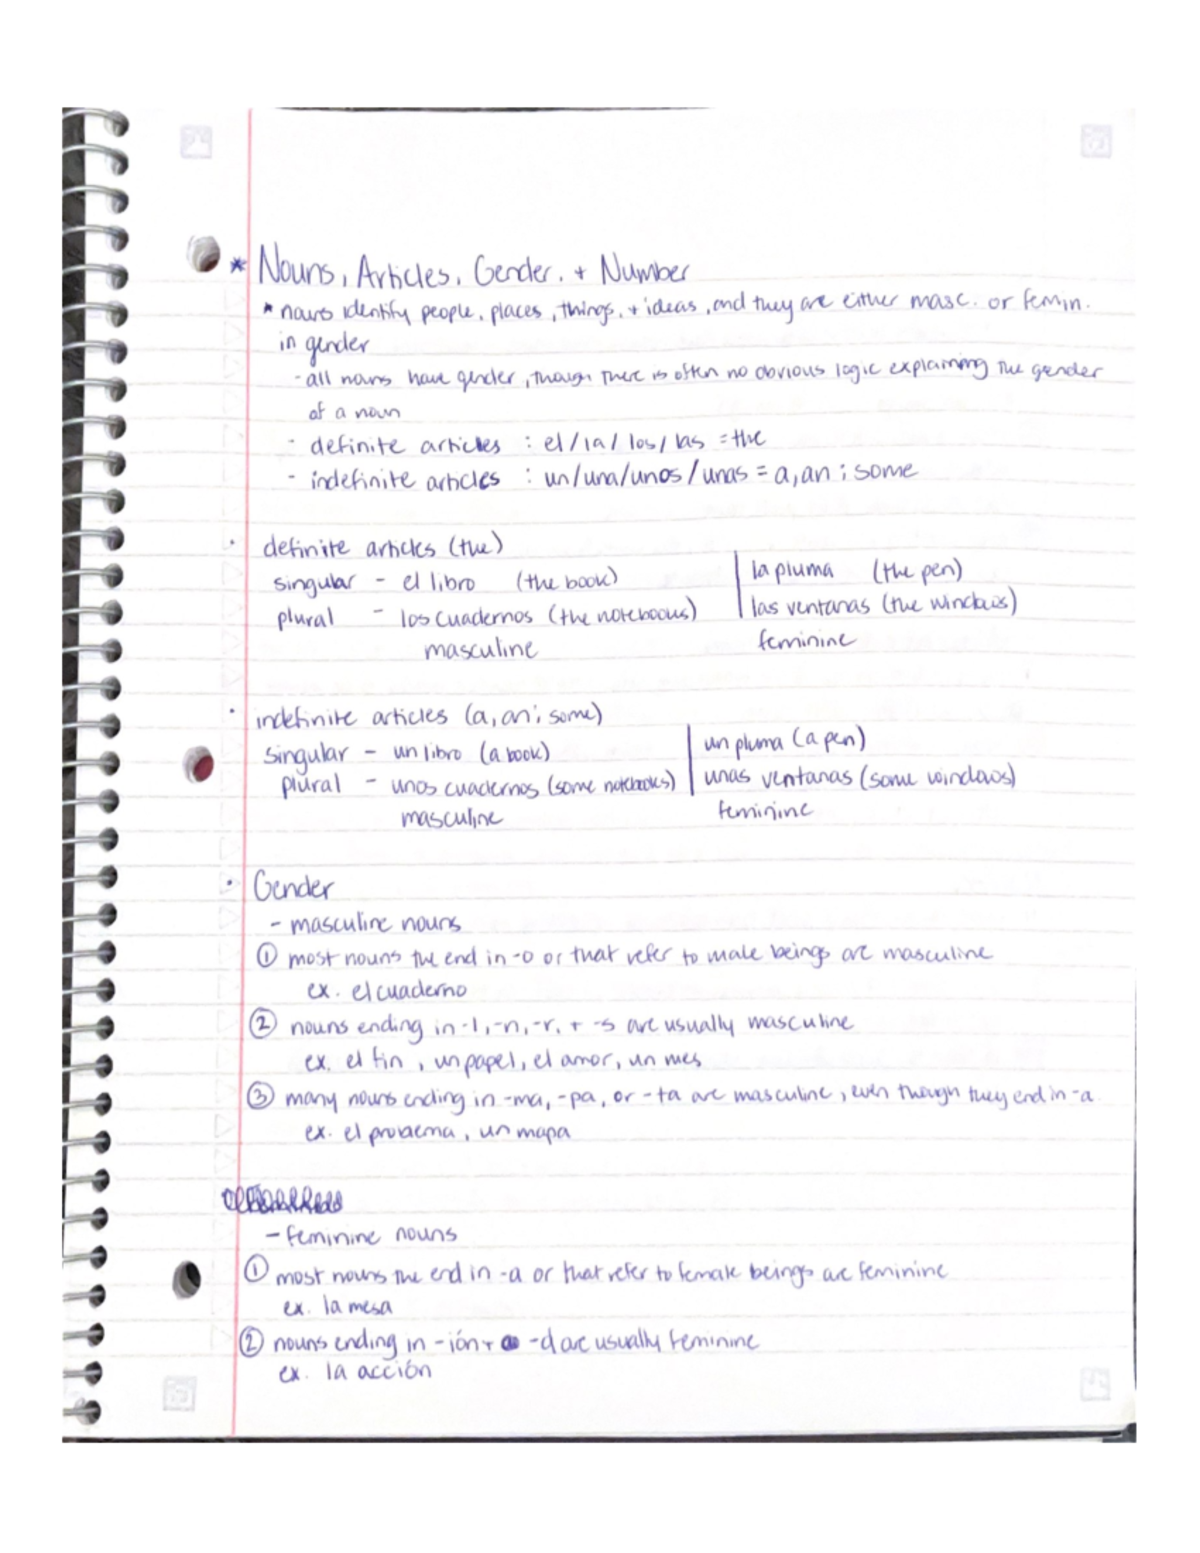 * Nouns, Articles, Gender, + Number
* nouns identify people, places, things, + ideas, and they are either masc. or femin.
in gender
- all nouns have gender, though there is often no obvious logic explaining the gender
of a noun
- definite articles : el/la/los/las = the
- indefinite articles : un/una/unos/unas = a, an; some
· definite articles (the)
singular - el libro (the book) | la pluma (the pen)
plural - los cuadernos (the notebooks) | las ventanas (the windows)
masculine feminine
· indefinite articles (a, an; some)
singular - un libro (a book) | un pluma (a pen)
plural - unos cuadernos (some notebooks) | unas ventanas (some windows)
masculine feminine
· Gender
- masculine nouns
① most nouns the end in -o or that refer to male beings are masculine
ex. el cuaderno
② nouns ending in -l, -n, -r, + -s are usually masculine
ex. el fin, un papel, el amor, un mes
③ many nouns ending in -ma, -pa, or -ta are masculine, even though they end in -a
ex. el problema, un mapa
- feminine nouns
① most nouns the end in -a or that refer to female beings are feminine
ex. la mesa
② nouns ending in -ión + -d are usually feminine
ex. la acción